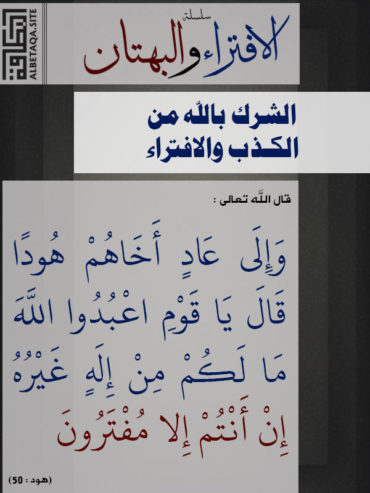 البطاقة
ALBETAQA.SITE
سلسلة
الافتراء والبهتان
الشرك بالله من
الكذب والافتراء
قال الله تعالى :
وَإِلَى عَادٍ أَخَاهُمْ هُودًا
قَالَ يَا قَوْمِ اعْبُدُوا اللَّهَ
مَا لَكُمْ مِنْ إِلَهٍ غَيْرُهُ
إِنْ أَنْتُمْ إِلا مُفْتَرُونَ
(هود : 50)